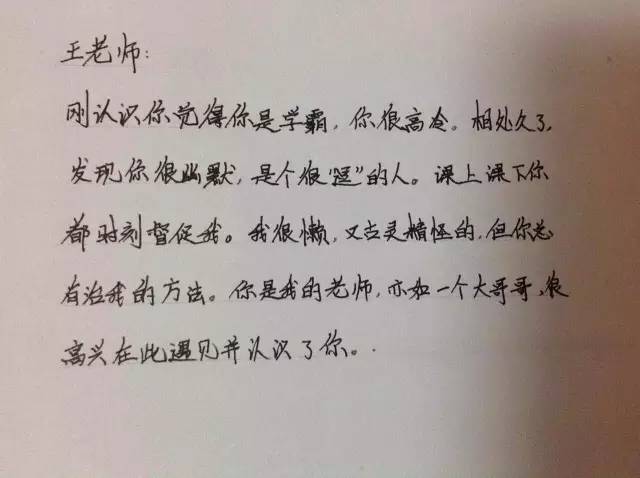 王老师:
刚认识你觉得你是学霸，你很高冷。相处久了，
发现你很幽默，是个很“逗”的人。课上课下你
都时刻督促我。我很懒，又古灵精怪的，但你总
有治我的方法。你是我的老师，亦如一个大哥哥，很
高兴在此遇见并认识了你。